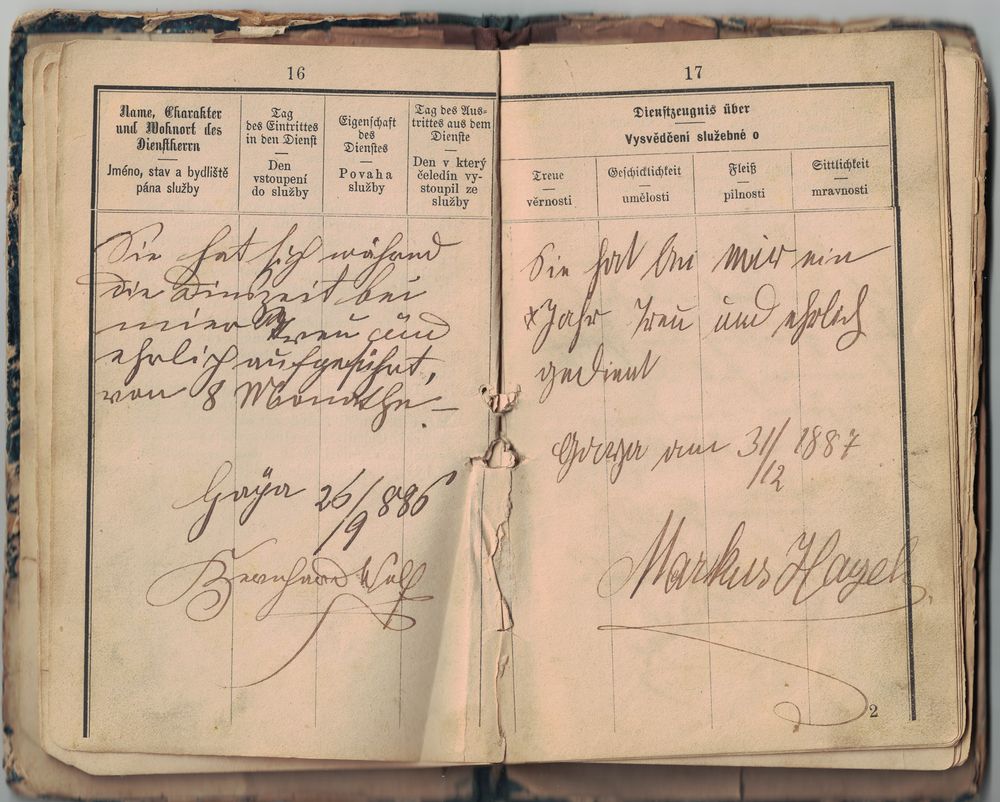 16
Name, Charakter
und Wohnort des
Dienstherrn
Jméno, stav a bydliště
pána služby
Tag
des Eintrittes
in den Dienst
Den
vstoupení
do služby
Eigenschaft
des
Dienstes
Povaha
služby
Tag des Aus-
trittes aus dem
Dienste
Den v který
čeledín vy-
stoupil ze
služby
Sie hat sich während
die Dinszeit bei
mier Treu und
ehrlich aufgeführt,
von 8 Monathe.
Gaya 26/9 886
Bernhard Wolf
17
Dienstzeugnis über
Vysvědčení služebné o
Treue
věrnosti
Geschicklichkeit
umělosti
Fleiß
pilnosti
Sittlichkeit
mravnosti
Sie hat bei mir ein
Jahr Treu und ehrlich
gedient
am 31/12 1887
Markus Hayek
2